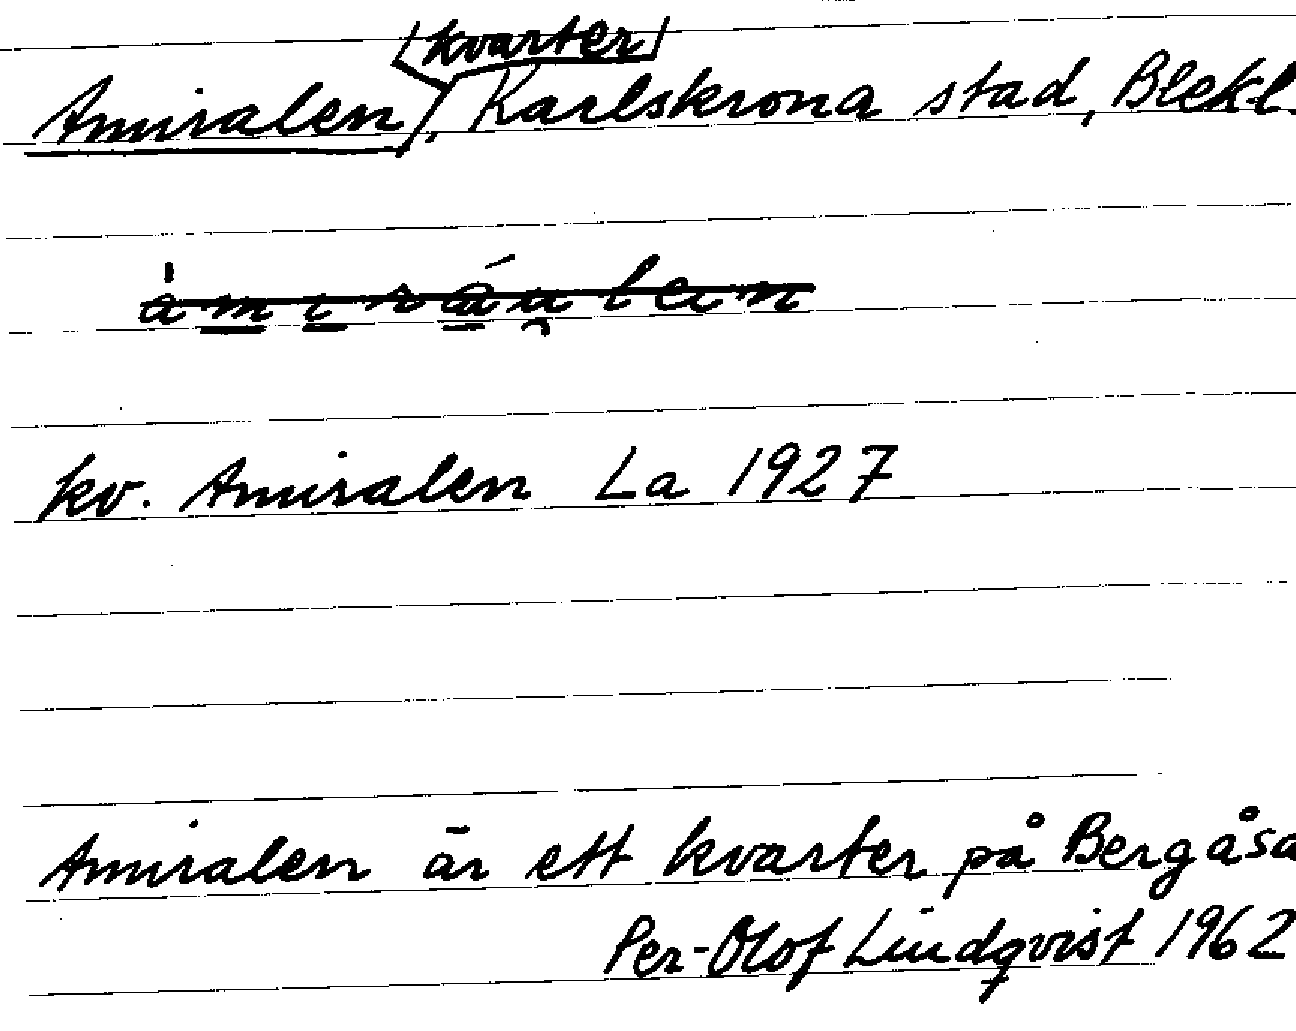 kvarter
Amiralen, Karlskrona stad, Blekl.
kv. Amiralen La 1927
Amiralen är ett kvarter på Bergåsa
Per-Olof Lindqvist 1962